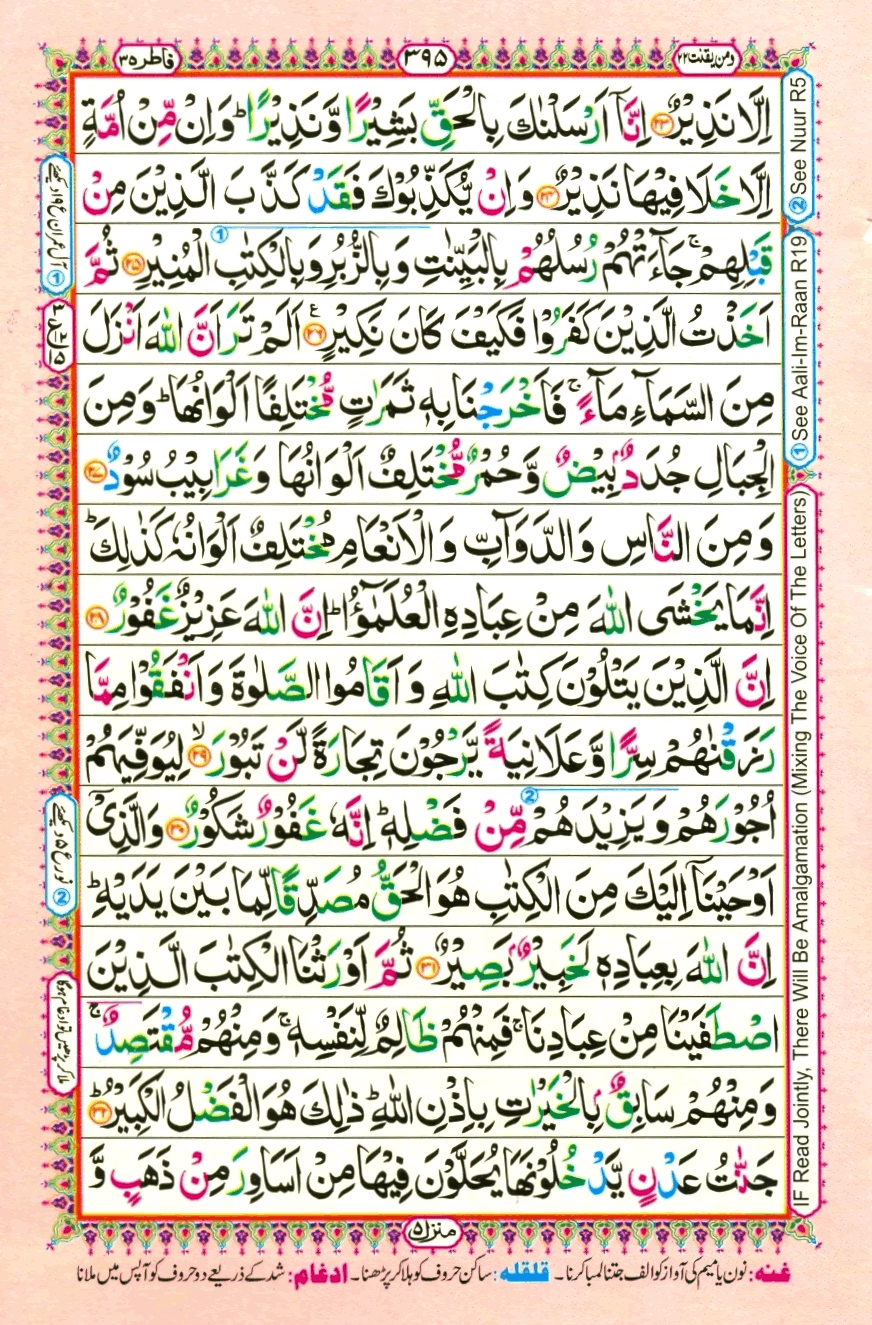 ومن یقنت ۲۲
۳۹۵
فاطر ۳۵
اِلَّا نَذِیْرٌ ۝۲۳ اِنَّاۤ اَرْسَلْنٰكَ بِالْحَقِّ بَشِیْرًا وَّ نَذِیْرًا ؕ وَ اِنْ مِّنْ اُمَّةٍ
اِلَّا خَلَا فِیْهَا نَذِیْرٌ ۝۲۴ وَ اِنْ یُّكَذِّبُوْكَ فَقَدْ كَذَّبَ الَّذِیْنَ مِنْ
قَبْلِهِمْ ۚ جَآءَتْهُمْ رُسُلُهُمْ بِالْبَیِّنٰتِ وَ بِالزُّبُرِ وَ بِالْكِتٰبِ الْمُنِیْرِ ۝۲۵ ثُمَّ
اَخَذْتُ الَّذِیْنَ كَفَرُوْا فَكَیْفَ كَانَ نَكِیْرِ ۝۲۶ اَلَمْ تَرَ اَنَّ اللّٰهَ اَنْزَلَ
مِنَ السَّمَآءِ مَآءً ۚ فَاَخْرَجْنَا بِهٖ ثَمَرٰتٍ مُّخْتَلِفًا اَلْوَانُهَا ؕ وَ مِنَ
الْجِبَالِ جُدَدٌۢ بِیْضٌ وَّ حُمْرٌ مُّخْتَلِفٌ اَلْوَانُهَا وَ غَرَابِیْبُ سُوْدٌ ۝۲۷
وَ مِنَ النَّاسِ وَ الدَّوَآبِّ وَ الْاَنْعَامِ مُخْتَلِفٌ اَلْوَانُهٗ كَذٰلِكَ ؕ
اِنَّمَا یَخْشَی اللّٰهَ مِنْ عِبَادِهِ الْعُلَمٰٓؤُا ؕ اِنَّ اللّٰهَ عَزِیْزٌ غَفُوْرٌ ۝۲۸
اِنَّ الَّذِیْنَ یَتْلُوْنَ كِتٰبَ اللّٰهِ وَ اَقَامُوا الصَّلٰوةَ وَ اَنْفَقُوْا مِمَّا
رَزَقْنٰهُمْ سِرًّا وَّ عَلَانِیَةً یَّرْجُوْنَ تِجَارَةً لَّنْ تَبُوْرَ ۝۲۹ۙ لِیُوَفِّیَهُمْ
اُجُوْرَهُمْ وَ یَزِیْدَهُمْ مِّنْ فَضْلِهٖ ؕ اِنَّهٗ غَفُوْرٌ شَكُوْرٌ ۝۳۰ وَ الَّذِیْۤ
اَوْحَیْنَاۤ اِلَیْكَ مِنَ الْكِتٰبِ هُوَ الْحَقُّ مُصَدِّقًا لِّمَا بَیْنَ یَدَیْهِ ؕ
اِنَّ اللّٰهَ بِعِبَادِهٖ لَخَبِیْرٌۢ بَصِیْرٌ ۝۳۱ ثُمَّ اَوْرَثْنَا الْكِتٰبَ الَّذِیْنَ
اصْطَفَیْنَا مِنْ عِبَادِنَا ۚ فَمِنْهُمْ ظَالِمٌ لِّنَفْسِهٖ ۚ وَ مِنْهُمْ مُّقْتَصِدٌ ۚ
وَ مِنْهُمْ سَابِقٌۢ بِالْخَیْرٰتِ بِاِذْنِ اللّٰهِ ؕ ذٰلِكَ هُوَ الْفَضْلُ الْكَبِیْرُ ۝۳۲ؕ
جَنّٰتُ عَدْنٍ یَّدْخُلُوْنَهَا یُحَلَّوْنَ فِیْهَا مِنْ اَسَاوِرَ مِنْ ذَهَبٍ وَّ
منزل ۵
غنہ: نون یا میم کی آواز کو الف جتنا لمبا کرنا۔ قلقلہ: ساکن حروف کو ہلا کر پڑھنا۔ ادغام: شد کے ذریعے دو حروف کو آپس میں ملانا
② See Nuur R5
① See Aali-Im-Raan R19
IF Read Jointly, There Will Be Amalgamation (Mixing The Voice Of The Letters)
① آل عمران ع ۱۹ دیکھئے
② نور ع ۵ دیکھئے
ملا کر پڑھیں تو ادغام ہوگا